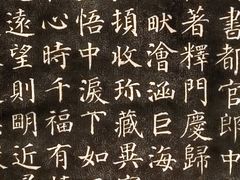 書都官郎中
著釋門慶歸
畎澮涵巨海
頊收珎藏異寳
悟中淚下如
心時千福有
遠望則明近尋